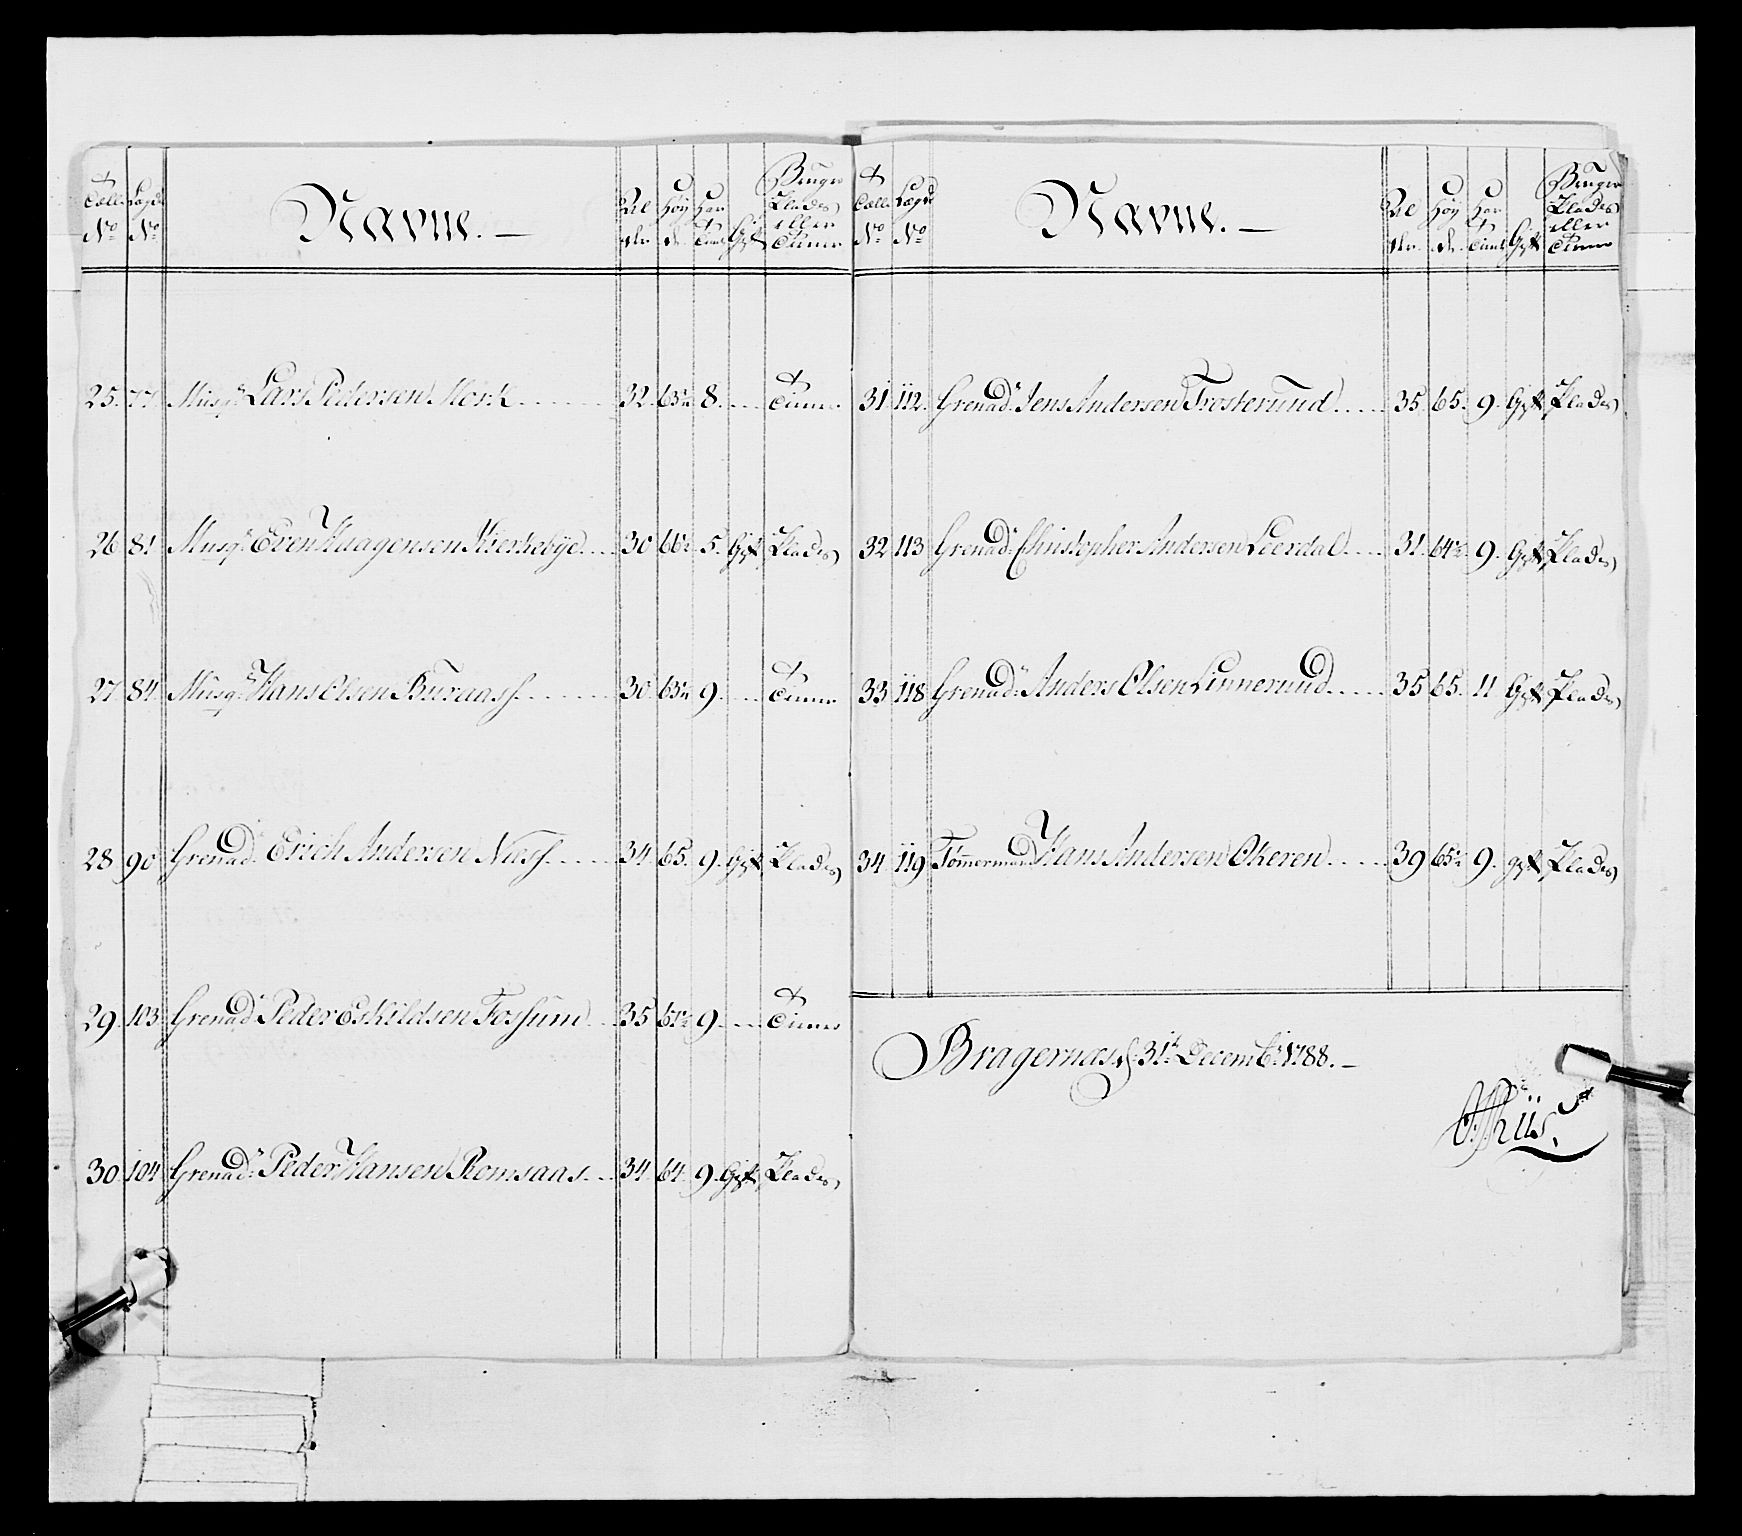 Tælle No Lægds No Navne. — Alder Høyde Har Tient Gift Bruger Pladser eller Tiener
25. 77. Musqr Lars Pedersen Mork 32. 63½ 8. Tiener
26 81 Musqr Even Haagensen Kierkebye 30 66½ 5. Gift Pladser
27 84. Musqr Hans Olsen Buraass 30 63½ 9. Tiener
28 90 Grenadr Erich Andersen Ness 34 65. 9. Gift Pladser
29 103 Grenadr Peder Eskildsen Fossum 35 61½ 9. Tiener
30 104 Grenadr Peder Hansen Romsaas 34 64. 9. Gift Pladser
Tælle No Lægds No Navne. — Alder Høyde Har Tient Gift Bruger Pladser eller Tiener
31 112. Grenadr Jens Andersen Trosterud 35 65. 9. Gift Pladser
32 113 Grenadr Christopher Andersen Leerdal 31 64½ 9. Gift Pladser
33 118 Grenadr Anders Olsen Linnerund 35 65. 11 Gift Pladser
34 119 Tømmermand Hans Andersen Okeren 39 65½ 9. gift Pladser
Bragernæs d: 31t Decembr 1788. —